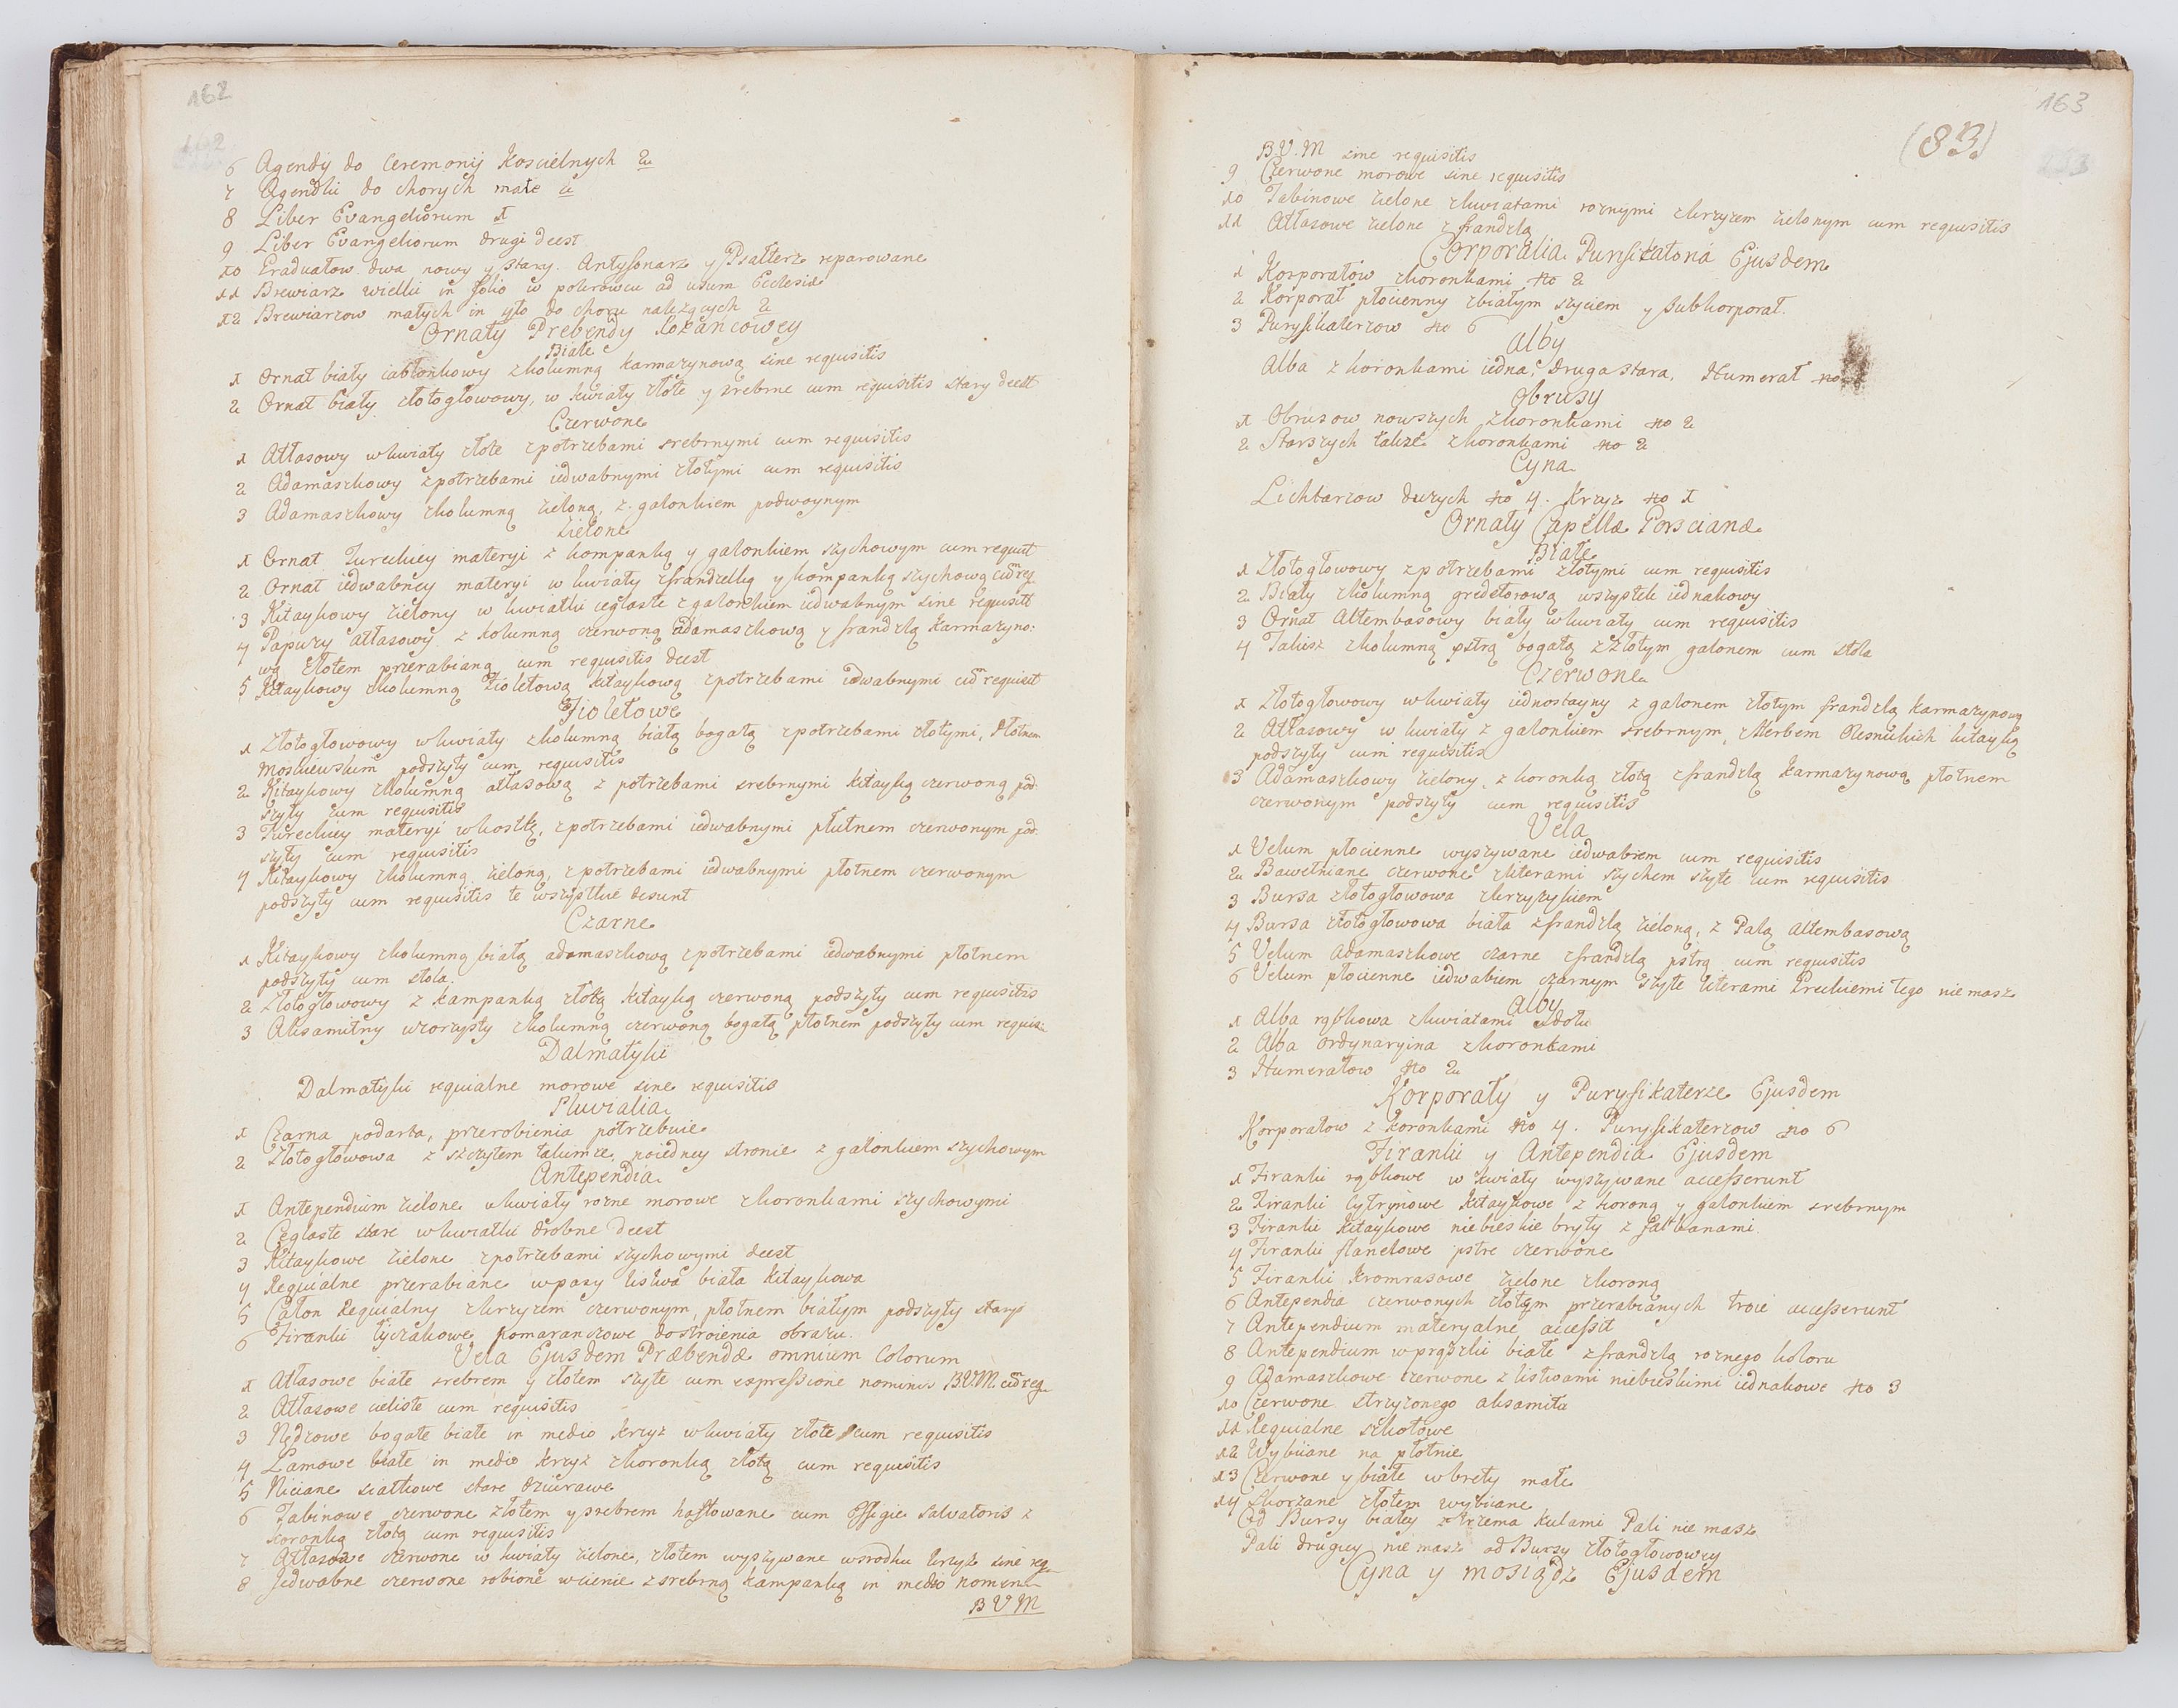 162
6 Agendy do Ceremonij Koscielnych 2
7 Agendki do chorych małe 2
8 Liber Evangeliorum 1
9 Liber Evangeliorum drugi deest
10 Graduałow dwa nowy y stary. Antyfonarz y Psałterz reparowane
11 Brewiarz wielki in folio w pokrowcu ad usum Ecclesiæ
12 Brewiarzow małych in 4to do choru należących 2
Ornaty Prebendy Rożańcowey
Białe
1 Ornat biały iabłonkowy zkolumną karmazynową sine requisitis
2 Ornat biały złotogłowowy, w kwiaty złote y srebrne cum requisitis stary deest
Czerwone
1 Atłasowy wkwiaty złote zpotrzebami srebrnymi cum requisitis
2 Adamaszkowy zpotrzebami iedwabnymi złotymi cum requisitis
3 Adamaszkowy zkolumną zieloną, z galonkiem podwoynym
Zielone
1 Ornat Tureckiey materyi z kompanką y galonkiem szychowym cum requisit
2 Ornat iedwabney materyi w kwiaty zfrandzelką y kompanką szychową cum req
3 Kitaykowy zielony w kwiatki ceglaste zgalonkiem iedwabnym sine requisit
4 Papuzy atłasowy z kolumną czerwoną adamaszkową y frandzlą karmazyno:
wą złotem przerabianą cum requisitis deest
5 Kitaykowy zkolumną fioletową kitaykową zpotrzebami iedwabnymi cum requisit
Fioletowe
1 Złotogłowowy wkwiaty zkolumną białą bogatą zpotrzebami złotymi, Płotnem
Moskiewskim podszyty cum requisitis
2 Kitaykowy zkolumną atłasową z potrzebami srebrnymi kitayką czerwoną pod-
szyty cum requisitis
3 Tureckiey materyi wkostkę, zpotrzebami iedwabnymi płutnem czerwonym pod-
szyty cum requisitis
4 Kitaykowy zkolumną zieloną, zpotrzebami iedwabnymi płotnem czerwonym
podszyty cum requisitis te wszystkie desunt
Czarne
1 Kitaykowy zkolumną białą adamaszkową zpotrzebami iedwabnymi płotnem
podszyty cum stola.
2 Złotogłowowy z kampanką złotą kitayką czerwoną podszyty cum requisitis
3 Aksamitny wzorzysty zkolumną czerwoną bogatą płotnem podszyty cum requis:
Dalmatyki
Dalmatyki requialne morowe sine requisitis
Pluvialia
1 Czarna podarta, przerobienia potrzebuie
2 Złotogłowowa z szczytem takimże, poiedney stronie z galonkiem szychowym
Antependia
1 Antependium zielone wkwiaty rozne morowe zkoronkami szychowymi
2 Ceglaste stare wkwiatki drobne deest
3 Kitaykowe zielone zpotrzebami szychowymi deest
4 Requialne przerabiane wpasy listwa biała kitaykowa
5 Całon Requialny zkrzyżem czerwonym, płotnem białym podszyty stary
6 Firanki łyczakowe pomaranczowe dostroienia obrazu.
Vela Ejusdem Præbendæ omnium Colorum
1 Atłasowe białe srebrem y złotem szyte cum expressione nominis B.V.M. cum req
2 Atłasowe cieliste cum requisitis
3 Nędzowe bogate białe in medio krzyż wkwiaty złote cum requisitis
4 Lamowe białe in medio krzyż zkoronką złotą cum requisitis
5 Niciane siatkowe stare dziurawe
6 Tabinowe czerwone złotem ysrebrem haftowane cum Effigie Salvatoris z
koronką złotą cum requisitis
7 Atłasowe czerwone w kwiaty zielone, złotem wyszywane wsrodku krzyż sine req
8 Jedwabne czerwone robione wcienie zsrebrną kampanką in medio nomen
B V M
163
(83)
B.V.M sine requisitis
9 Czerwone morowe sine requisitis
10 Tabinowe zielone zkwiatami roznymi zkrzyżem zielonym cum requisitis
11 Atłasowe zielone z frandzlą
Corporalia Purifikatoria Ejusdem
1 Korporałow zkoronkami No 2
2 Korporał płocienny zbiałym szyciem y Subkorporał.
3 Puryfikaterzow No 6
Alby
Alba z koronkami iedna, druga stara, Humerał No
Obrusy
1 Obrusow nowszych zkoronkami No 2
2 Starszych także zkoronkami No 2
Cyna
Lichtarzow duzych No 4. Krzyż No 1
Ornaty Capellæ Porscianæ
Białe
1 Złotogłowowy zpotrzebami złotymi cum requisitis
2 Biały zkolumną gredetorową wszystek iednakowy
3 Ornat Altembasowy biały wkwiaty cum requisitis
4 Takisz zkolumną pstrą bogatą zzłotym galonem cum stola
Czerwone
1 Złotogłowowy wkwiaty iednostayny z galonem złotym frandzlą karmazynową
2 Atłasowy w kwiaty z galonkiem srebrnym, zHerbem Olesnickich kitayką
podszyty cum requisitis
3 Adamaszkowy zielony, z koronką złotą zfrandzlą karmazynową płotnem
czerwonym podszyty cum requisitis
Vela
1 Velum płocienne wyszywane iedwabiem cum requisitis
2 Bawełniane czerwone zliterami szychem szyte cum requisitis
3 Bursa złotogłowowa zkrzyżykiem
4 Bursa złotogłowowa biała zfrandzlą zieloną, z Palą Altembasową
5 Velum Adamaszkowe czarne zfrandzlą pstrą cum requisitis
6 Velum płocienne iedwabiem czarnym szyte literami Greckiemi tego niemasz
Alby
1 Alba rąbkowa zkwiatami zdołu
2 Alba ordynaryina zkoronkami
3 Humerałow No 2
Korporały y Puryfikaterze Ejusdem
Korporałow z koronkami No 4. Puryfikaterzow No 6
Firanki y Antependia Ejusdem
1 Firanki rąbkowe w kwiaty wyszywane accesserunt
2 Firanki Cytrynowe kitaykowe z koroną y galonkiem srebrnym
3 Firanki kitaykowe niebieskie bryty z falbanami.
4 Firanki flanelowe pstre czerwone
5 Firanki kromrasowe zielone zkoroną
6 Antependia czerwonych złotym przerabianych troie accesserunt
7 Antependium materyalne accessit
8 Antependium wprążki białe zfrandzlą roznego koloru
9 Adamaszkowe czerwone z listwami niebieskimi iednakowe No 3
10 Czerwone strzyżonego aksamitu
11 Requialne szkotowe
12 Wybiiane na płotnie
13 Czerwone y białe wbrety małe
14 Skorzane złotem wybiiane
Od Bursy białey ztrzema kulami Pali nie masz
Pali drugiey nie masz od Bursy złotogłowowey
Cyna y mosiądz Ejusdem